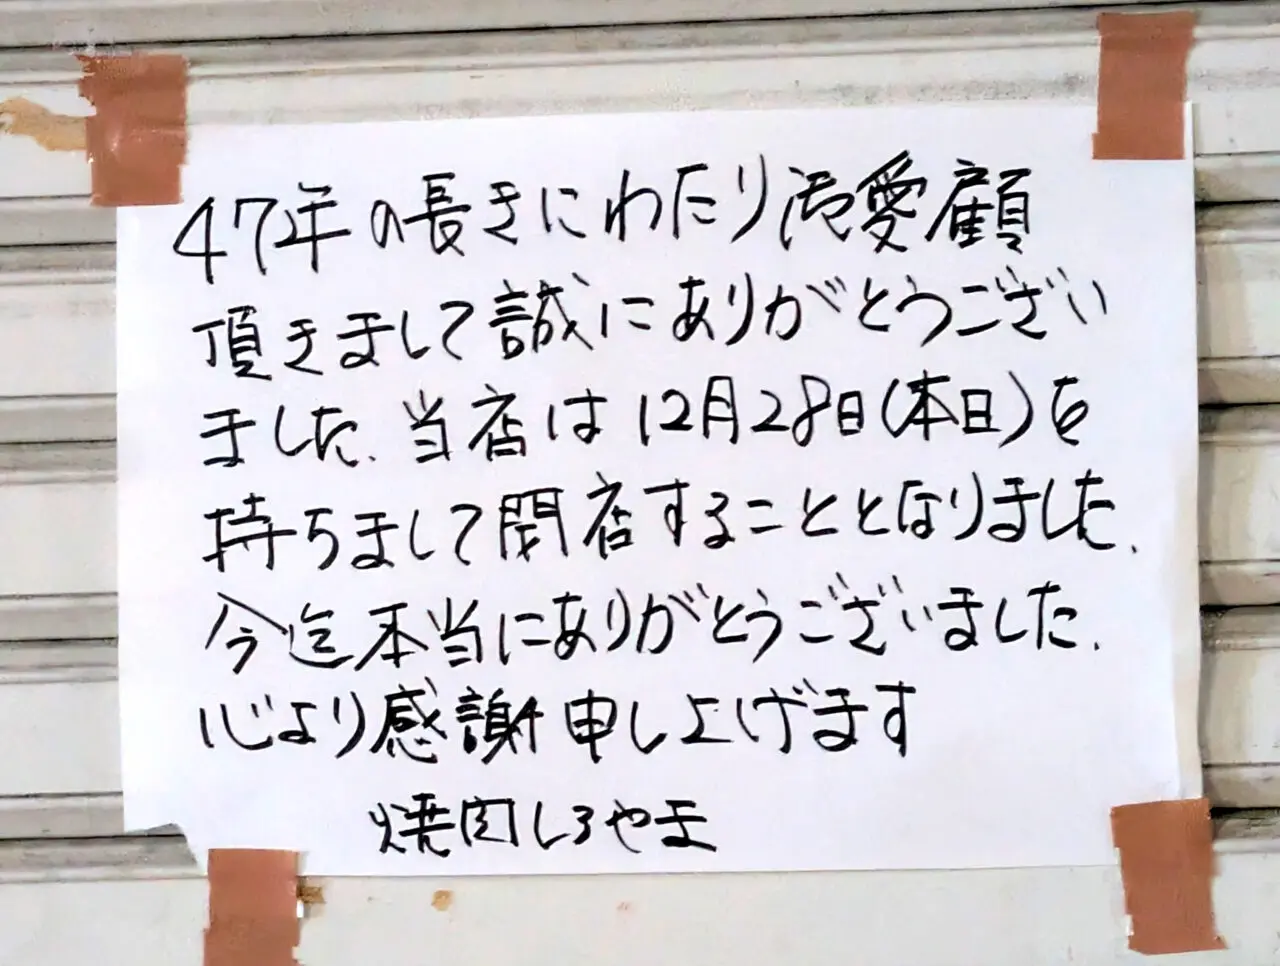 47年の長きにわたり御愛顧
頂きまして誠にありがとうござい
ました.当店は12月28日(本日)を
持ちまして閉店することとなりました.
今迄本当にありがとうございました.
心より感謝申し上げます
焼肉しろやま